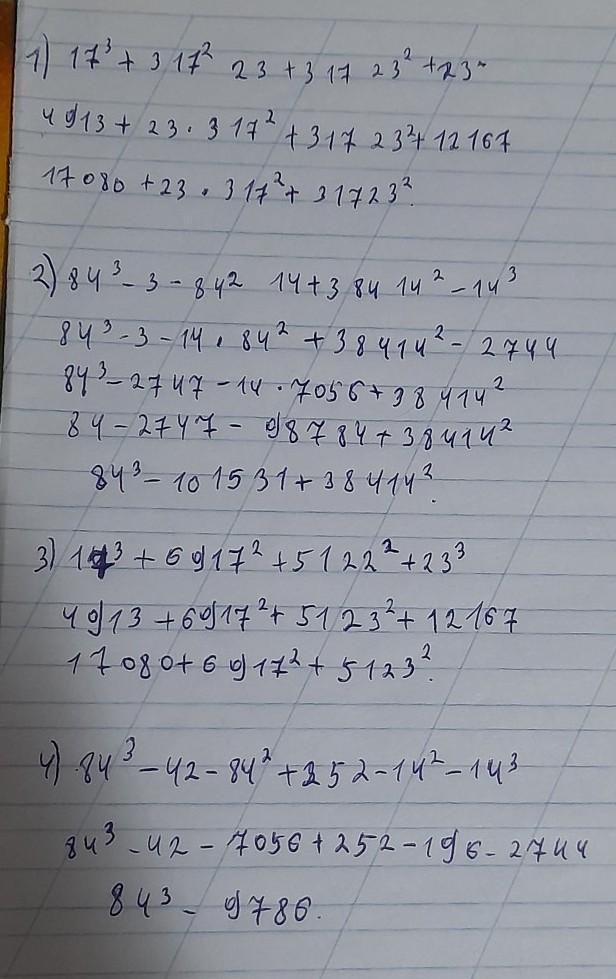 1) 17³ + 3 17² 23 + 3 17 23² + 23
4913 + 23 · 3 17² + 317 23² + 12167
17080 + 23 · 317² + 31723².
2) 84³ - 3 - 84² 14 + 3 84 14² - 14³
84³ - 3 - 14 · 84² + 38414² - 2744
84³ - 2747 - 14 · 7056 + 38414²
84 - 2747 - 98784 + 38414²
84³ - 101531 + 38414².
3) 17³ + 6917² + 5122² + 23³
4913 + 6917² + 5123² + 12167
17080 + 6917² + 5123².
4) 84³ - 42 - 84² + 252 - 14² - 14³
84³ - 42 - 7056 + 252 - 196 - 2744
84³ - 9786.